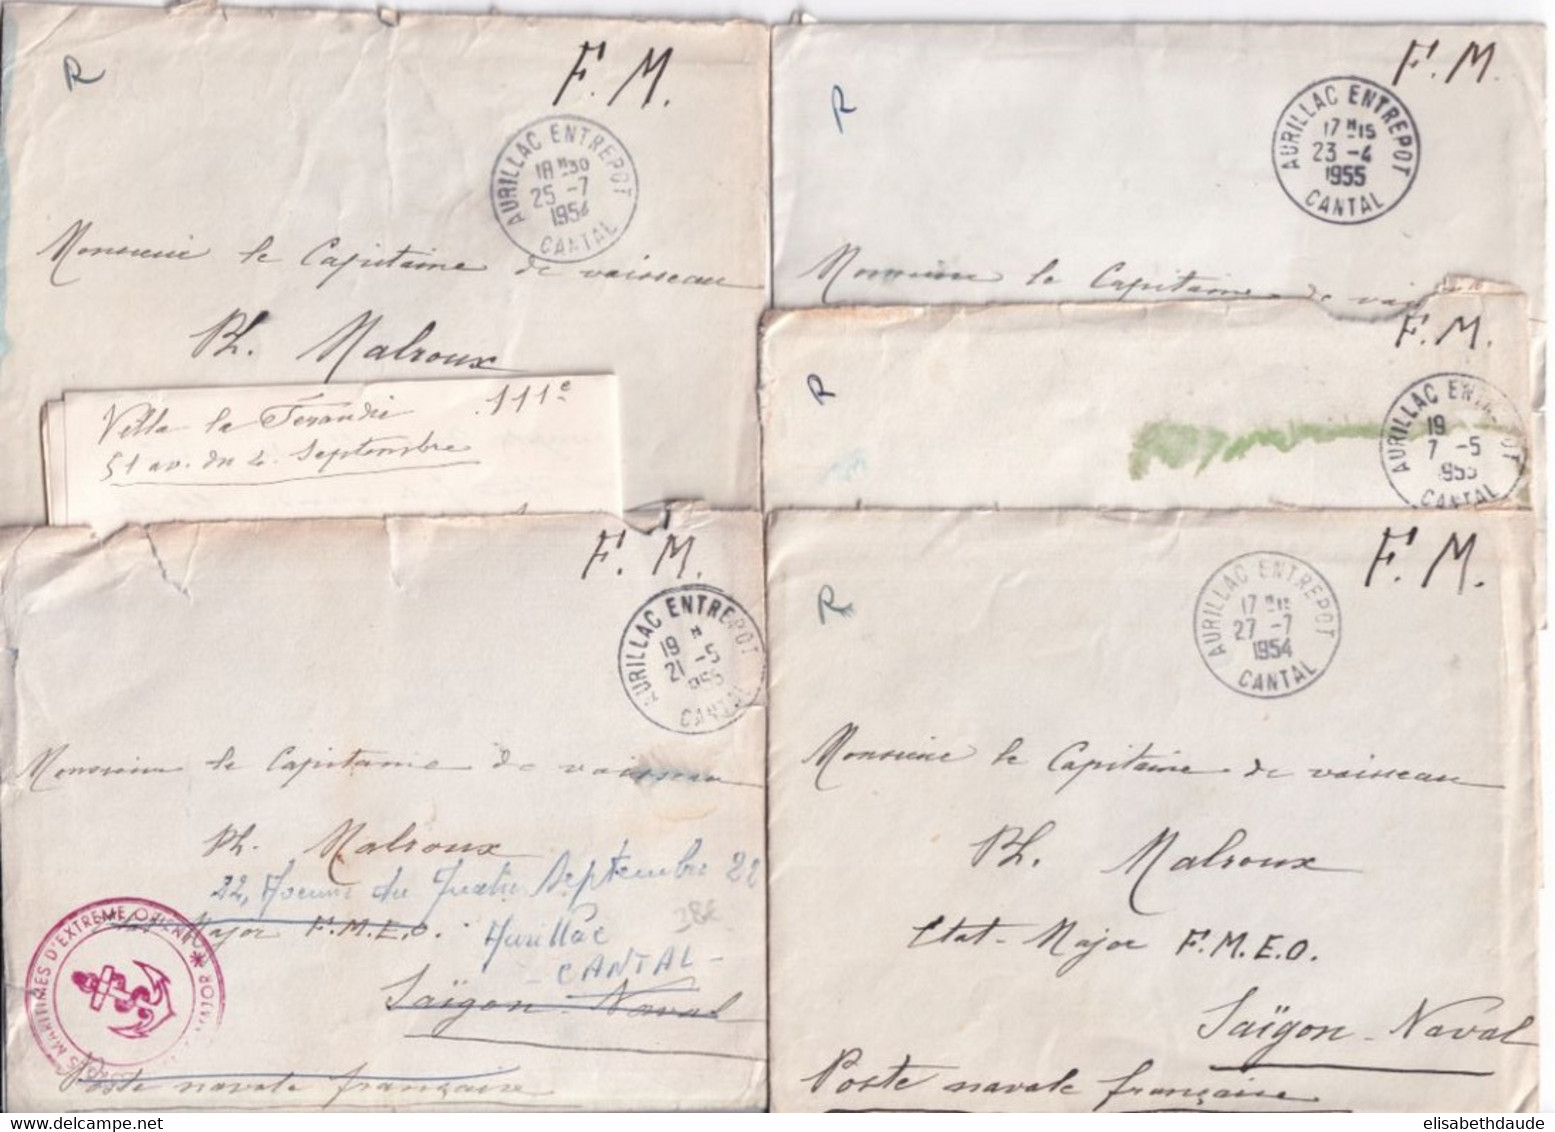 R
F.M.
AURILLAC ENTREPOT
18 H 30
25 -7
1954
CANTAL
Monsieur le Capitaine de vaisseau
Ph. Malroux
Villa la 111e
51 av. du 4 Septembre
R
F.M.
AURILLAC ENTREPOT
17 H 15
23 -4
1955
CANTAL
Monsieur le Capitaine de
R
F.M.
AURILLAC
19
7 -5
1955
CANTAL
F.M.
AURILLAC ENTREPOT
19 H
21 -5
CANTAL
Monsieur le Capitaine de vaisseau
Ph. Malroux
22, Avenue du Quatre Septembre 22
Major F.M.E.O.
Aurillac
- CANTAL -
Saïgon - Naval
Poste navale française
MARITIMES D'EXTREME ORIENT
R
F.M.
AURILLAC ENTREPOT
17 H 15
27 -7
1954
CANTAL
Monsieur le Capitaine de vaisseau
Ph. Malroux
Etat-Major F.M.E.O.
Saïgon - Naval
Poste navale française
elisabethdaude